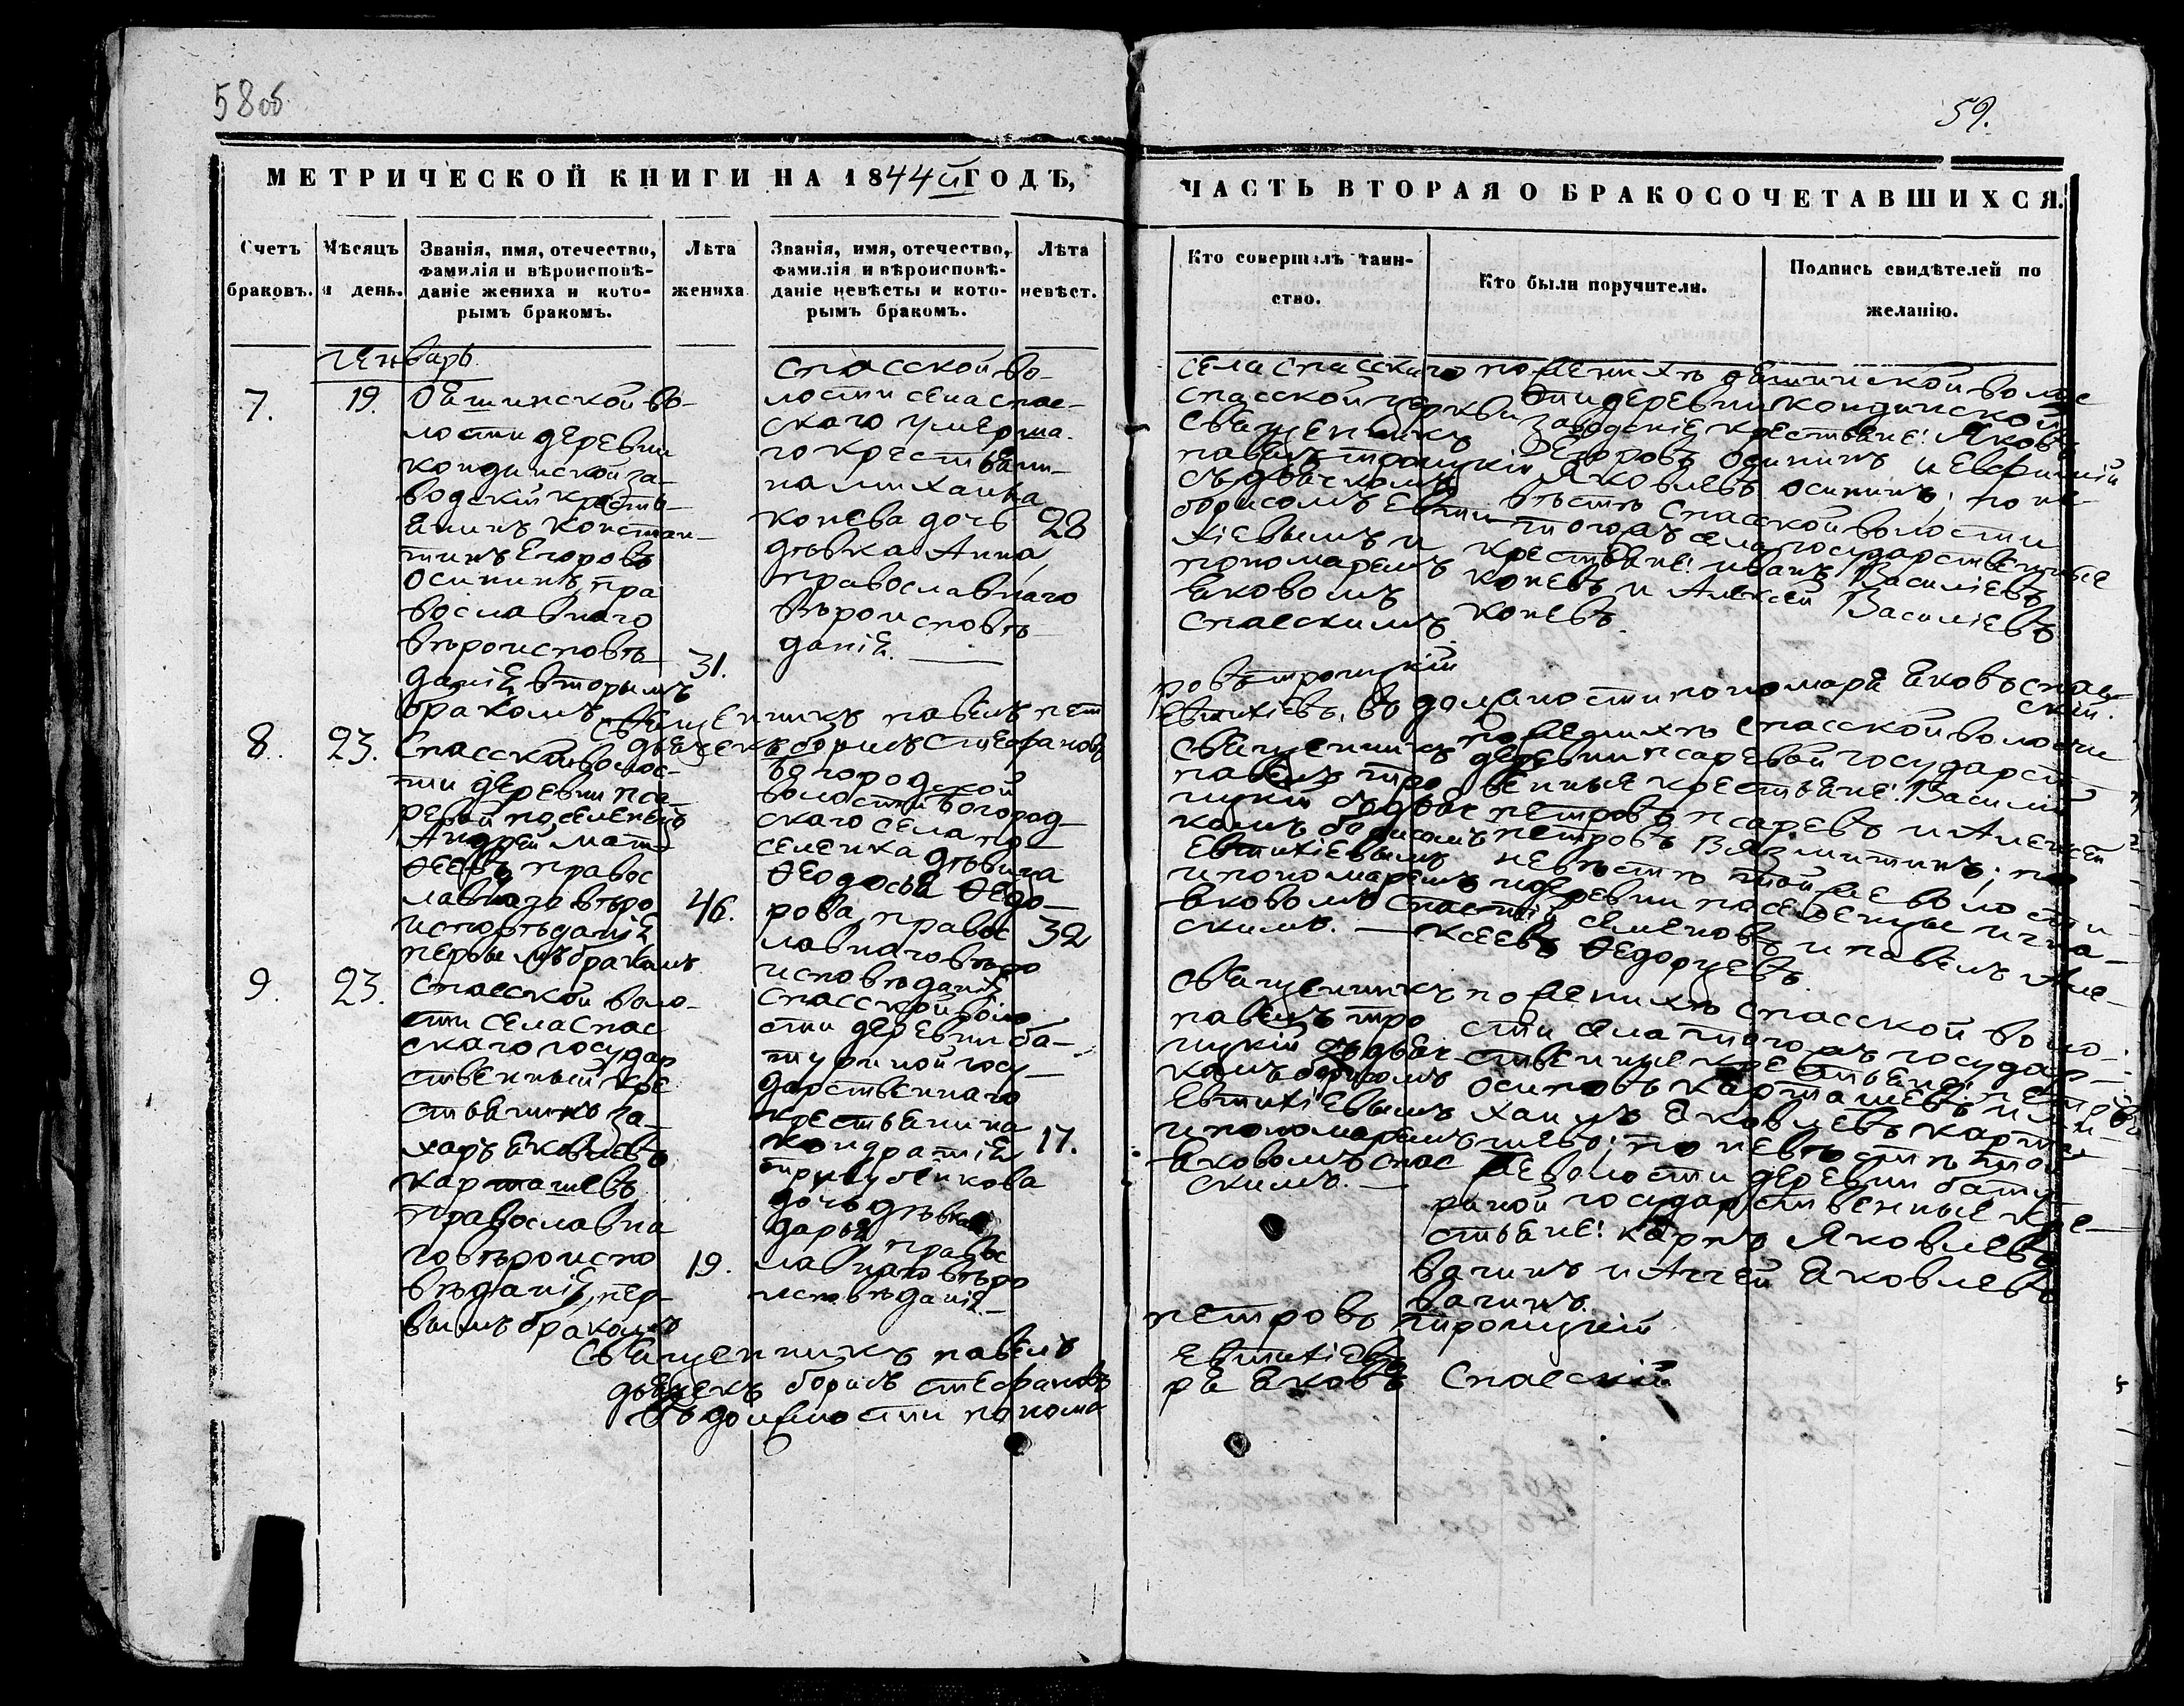 58об.
59.
МЕТРИЧЕСКОЙ КНИГИ НА 1844й ГОДЪ,
ЧАСТЬ ВТОРАЯ О БРАКОСОЧЕТАВШИХСЯ.
Счетъ браковъ.
Мѣсяцъ и день.
Званія, имя, отечество,
фамилія и вѣроисповѣ-
даніе жениха и кото-
рымъ бракомъ.
Лѣта жениха
Званія, имя, отечество,
фамилія и вѣроисповѣ-
даніе невѣсты и кото-
рымъ бракомъ.
Лѣта невѣст.
Кто совершилъ таин-
ство.
Кто были поручители.
Подпись свидѣтелей по
желанію.
Генварь.
7.
19.
Ояшинской во-
лости деревни
кондинской за-
водскій кресть-
янинъ Констан-
тинъ Егоровъ
Осининъ, пра
вославнаго
вѣроисповѣ-
данія, вторымъ
бракомъ
31.
Спасской во-
лости села Спас-
скаго умерша-
го крестьяни-
на Михаила
Конева дочь
дѣвка Анна,
православнаго
вѣроисповѣ-
данія.
28
села Спасскаго
Спасской церкви
священникъ
павелъ троицкій
съ дьячкомъ
борисомъ Евти-
хіевымъ и
пономаремъ
Яковомъ
Спасскимъ
по женихѣ Ояшинской волос
ти деревни кондинской
заводскіе крестьяне: Яковъ
Егоровъ Осининъ и Евфимій
Яковлевъ Осининъ; по не-
вѣстѣ Спасской волости
тогожъ села государственные
крестьяне: Иванъ Василіевъ
Коневъ и Алексей Василіевъ
Коневъ.
Священникъ павелъ пет
ровъ троицкій
дьячекъ борисъ Стефановъ
Евтихіевъ, въ должности пономаря Яковъ Спас-
скій.
8.
23.
Спасской волос-
ти деревни пса-
ревой поселенецъ
Андрей Мат-
ѳеевъ, правос
лавнаго вѣро
исповѣданія
первымъ бракомъ
46.
Богородской
волости Богород-
скаго села по-
селенка дѣвица
Ѳеодосья Ѳедо-
рова, правос
лавнаго вѣро
исповѣданія
32
Священникъ
павелъ тро
ицкій съ дьяч
комъ борисомъ
Евтихіевымъ
и пономаремъ
Яковомъ Спас
скимъ.
по женихѣ Спасской волости
деревни псаревой государст
венные крестьяне: Василій
петровъ псаревъ и Алексей
петровъ Вязмитинъ; по
невѣстѣ той же волости
и деревни поселенцы Игна-
тій Семеновъ и павелъ Але-
ксеевъ Ѳедорцевъ.
9.
23.
Спасской воло-
сти села Спас
скаго государ
ственный кре
стьянинъ За-
харъ Яковлевъ
Карташевъ
православна
го вѣроиспо
вѣданія, пер-
вымъ бракомъ
19.
Спасской воло
сти деревни ба-
туриной госу-
дарственнаго
крестьянина
Кондратія
дочь дѣвка
Дарья правос
лавнаго вѣро
исповѣданія.
17.
Священникъ
павелъ тро
ицкій съ дьяч
комъ борисомъ
Евтихіевымъ
и пономаремъ
Яковомъ Спас
скимъ.
по женихѣ Спасской воло-
сти села тогожъ государ-
ственные крестьяне: петръ
Осиповъ Карташевъ и Ми-
хаилъ Яковлевъ Карта
шевъ; по невѣстѣ той
же волости деревни бату
риной государственные кре-
стьяне: Карпъ Яковлевъ
Вагинъ и Аггей Яковлевъ
Вагинъ.
Священникъ павелъ
петровъ троицкій
дьячекъ борисъ Стефановъ
Евтихіевъ
въ должности понома
ря Яковъ Спасскій